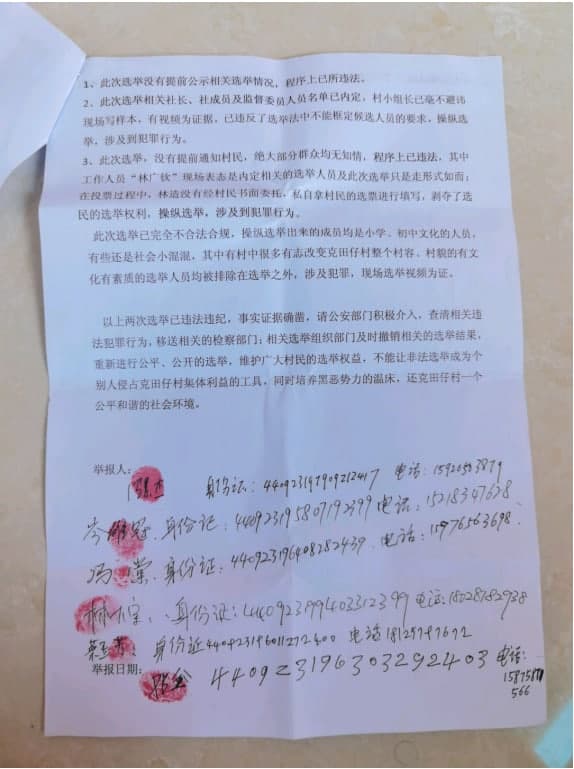 1、此次选举没有提前公示相关选举情况，程序上已所违法。
2、此次选举相关社长、社成员及监督委员人员名单已内定，村小组长已毫不避讳
现场写样本，有视频为证据，已违反了选举法中不能框定候选人员的要求，操纵选
举，涉及到犯罪行为。
3、此次选举，没有提前通知村民，绝大部分群众均无知情，程序上已违法，其中
工作人员“林广钦”现场表态是内定相关的选举人员及此次选举只是走形式如而；
在投票过程中，林造没有经村民书面委托，私自拿村民的选票进行填写，剥夺了选
民的选举权利，操纵选举，涉及到犯罪行为。
此次选举已完全不合法合规，操纵选举出来的成员均是小学、初中文化的人员，
有些还是社会小混混，其中有村中很多有志改变克田仔村整个村容、村貌的有文
化有素质的选举人员均被排除在选举之外，涉及犯罪，现场选举视频为证。
以上两次选举已违法违纪，事实证据确凿，请公安部门积极介入，查清相关违
法犯罪行为，移送相关的检察部门；相关选举组织部门及时撤销相关的选举结果，
重新进行公平、公开的选举，维护广大村民的选举权益，不能让非法选举成为个
别人侵占克田仔村集体利益的工具，同时培养黑恶势力的温床，还克田仔村一个
公平和谐的社会环境。
举报人：
身份证：440923197909212417 电话：
身份证：440923195807192399 电话：15218347628
身份证：440923196408282439 电话：15976563698
身份证：440923199403312399 电话：
身份证 440923196011272400 电话
举报日期：
440923196303292403 电话：
566